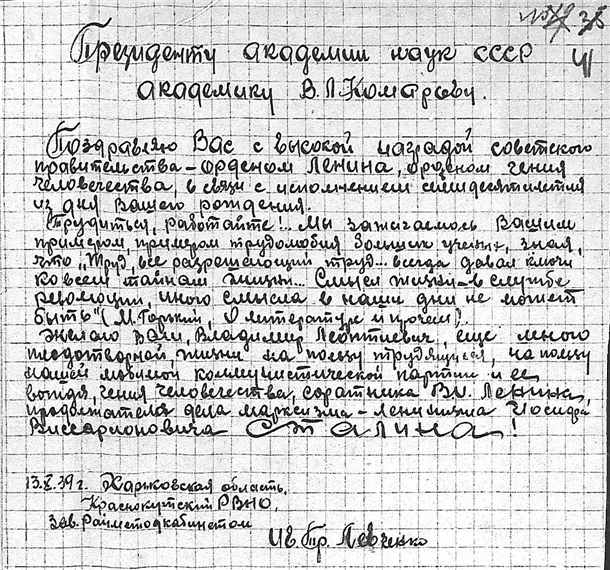 Президенту академии наук СССР
академику В.Л.Комарову.
Поздравляю Вас с высокой наградой советского
правительства – орденом Ленина, орденом гения
человечества, в связи с исполнением семидесятилетия
из дня Вашего рождения.
Трудитесь, работайте!... Мы зажигаемось Вашим
примером, примером трудолюбия больших ученых, зная,
что „Труд, все разрешающий труд... всегда давал ключи
ко всем тайнам жизни... Смысл жизни – в службе
революции, иного смысла в наши дни не может
быть" (М.Горький, О литературе и прочем).
Желаю Вам, Владимир Леонтиевич, еще много
плодотворной жизни на пользу трудящихся, на пользу
нашей любимой коммунистической партии и ее
вождя, гения человечества, соратника Вл. Ленина,
продолжателя дела марксизма – ленинизма Иосифа
Виссарионовича Сталина!
13.X.39 г. Харьковская область,
Краснокутский РВНО,
Зав. Райметодкабинетом
Ив. Пр. Левченко